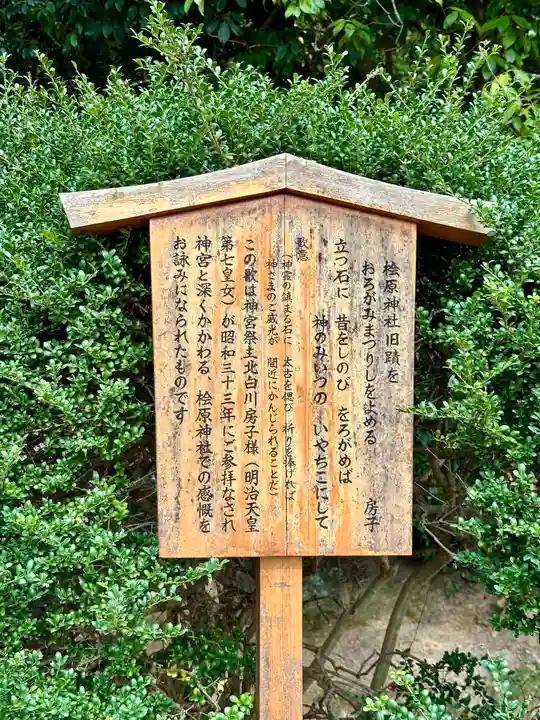 桧原神社旧蹟を
おろがみまつりしをよめる　房子
立つ石に　昔をしのび　をろがめば
神のみいつの　いやちこにして
歌意
（神霊の鎮まる石に　太古を偲び　祈りを捧げれば
神さまのご威光が　間近にかんじられることだ）
この歌は神宮祭主北白川房子様（明治天皇
第七皇女）が昭和三十三年にご参拝なされ
神宮と深くかかわる、桧原神社での感慨を
お詠みになられたものです